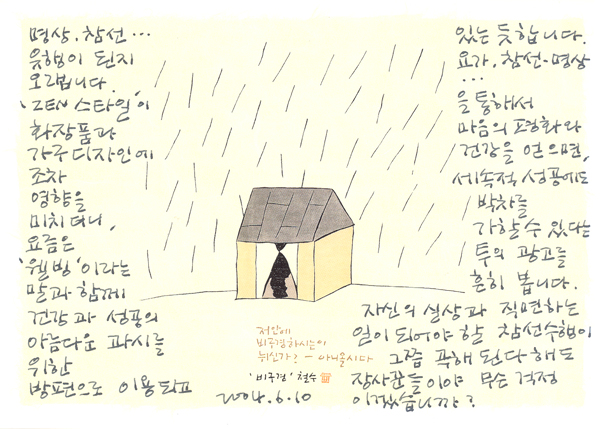 명상. 참선…
유행이 된지
오래됩니다.
'ZEN 스타일'이
화장품과
가구디자인에
조차
영향을
미치더니,
요즘은
'웰빙'이라는
말과 함께
건강과 성공의
아름다운 과시를
위한
방편으로 이용되고
있는 듯합니다.
요가, 참선·명상
…
을 통해서
마음의 평화와
건강을 얻으면,
세속적 성공에도
박차를
가할 수 있다는
투의 광고를
흔히 봅니다.
자신의 실상과 직면하는
일이 되어야 할 참선수행이
그쯤 푹해 된다 해도
장사꾼들이야 무슨 걱정
이겠습니까?
저안에
비구경하시는이
뉘신가? – 아니올시다
'비구경' 철수
2004.6.10